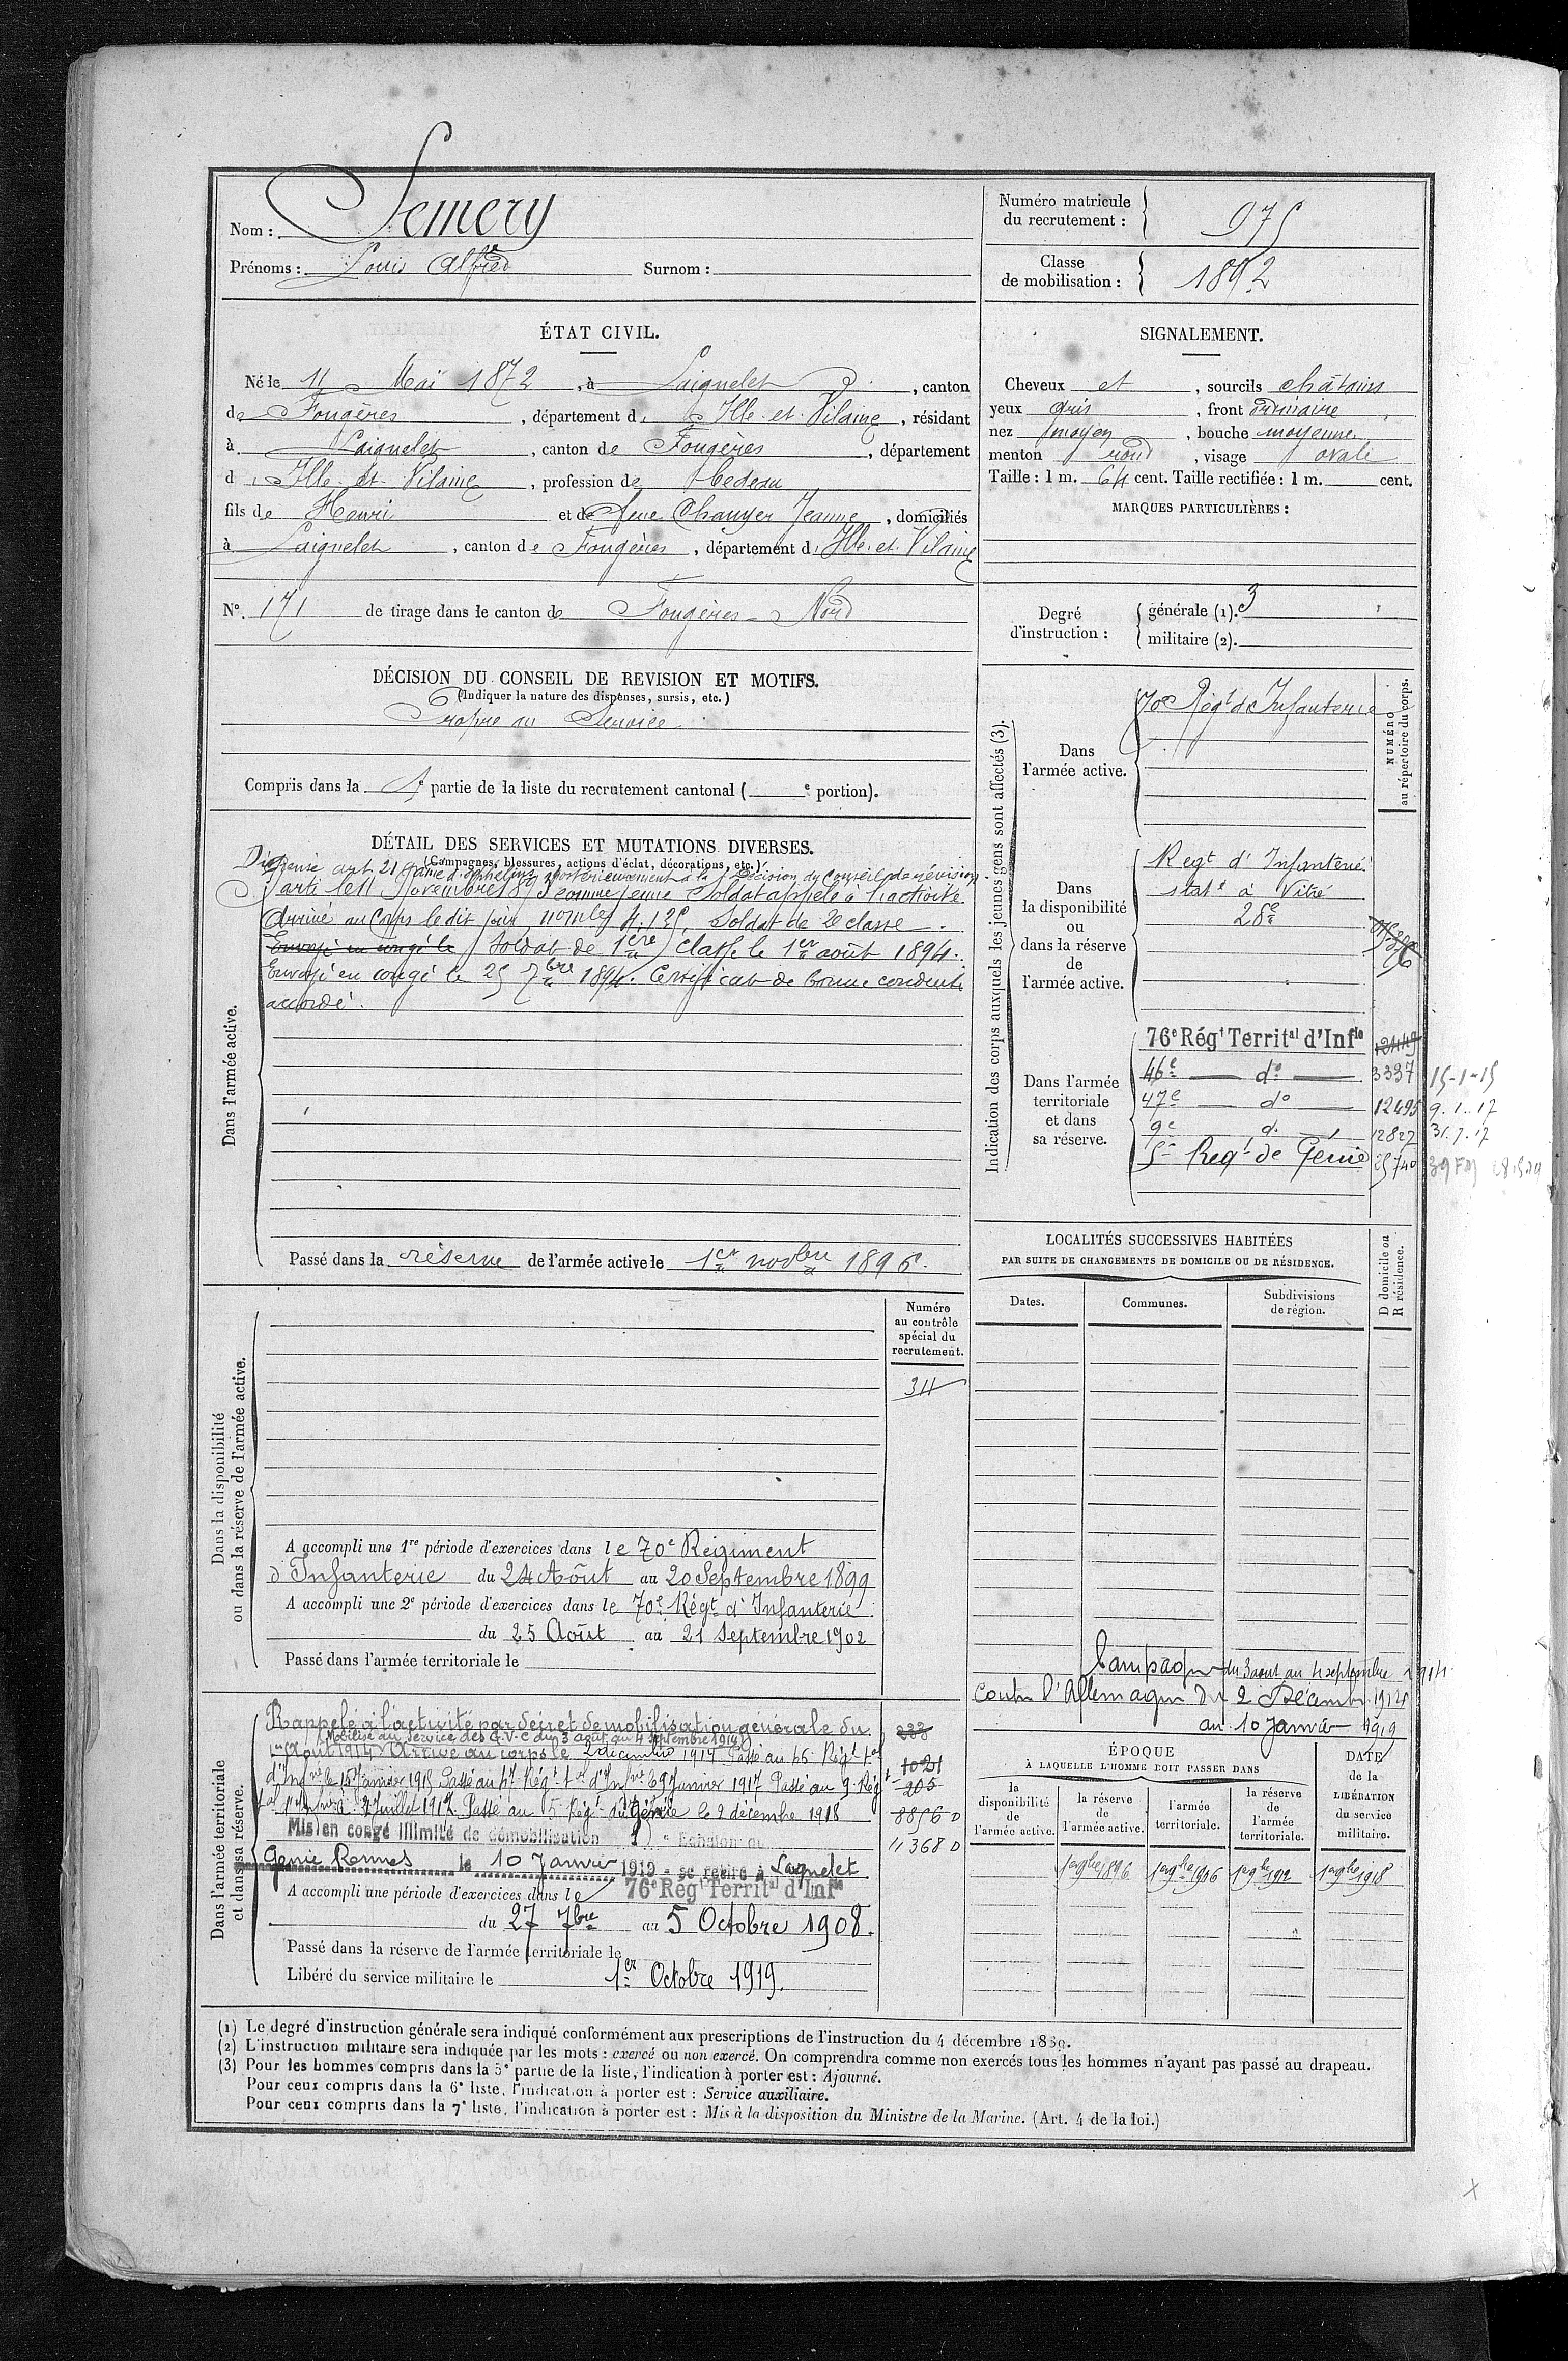 Nom : Semery
Prénoms : Louis Alfred Surnom :
Numéro matricule du recrutement : 975
Classe de mobilisation : 1892
ÉTAT CIVIL.
Né le 11 Mai 1872, à Laignelet, canton
de Fougères, département d Ille-et-Vilaine, résidant
à Laignelet, canton de Fougères, département
d Ille-et-Vilaine, profession de
fils de Henri et de feue Jeanne, domiciliés
à Laignelet, canton de Fougères, département d Ille-et-Vilaine
N° 171 de tirage dans le canton de Fougères-Nord
SIGNALEMENT.
Cheveux et, sourcils châtains
yeux gris, front ordinaire
nez moyen, bouche moyenne
menton rond, visage ovale
Taille : 1 m. 64 cent. Taille rectifiée : 1 m. cent.
MARQUES PARTICULIÈRES :
Degré d'instruction : générale (1). 3
militaire (2).
DÉCISION DU CONSEIL DE REVISION ET MOTIFS.
(Indiquer la nature des dispenses, sursis, etc.)
Propre au Service
Compris dans la 1e partie de la liste du recrutement cantonal ( e portion).
DÉTAIL DES SERVICES ET MUTATIONS DIVERSES.
(Campagnes, blessures, actions d'éclat, décorations, etc.)
Dispensé art. 21 (aîné d'orphelins) postérieurement à la décision du conseil de révision
Parti le 11 Novembre 1893 comme jeune Soldat appelé à l'activité
Arrivé au Corps le dit jour, nomle 4.125, Soldat de 2e classe.
Envoyé en congé le Soldat de 1ère Classe le 1er août 1894.
Envoyé en congé le 25 7bre 1894. Certificat de bonne conduite
accordé.
Dans l'armée active.
Passé dans la réserve de l'armée active le 1er novbre 1896.
Indication des corps auxquels les jeunes gens sont affectés (3).
NUMÉRO au répertoire du corps.
Dans l'armée active.
70e Régt d'Infanterie
Dans la disponibilité ou dans la réserve de l'armée active.
Regt d'Infanterie
staté à Vitré
28e
Dans l'armée territoriale et dans sa réserve.
76e Régt Territal d'Infie 12449
46e do 3337 15-1-15
47e do 12495 9.1.17
9e d. 12827 31.7.17
5e Regt de Génie 25740
LOCALITÉS SUCCESSIVES HABITÉES
PAR SUITE DE CHANGEMENTS DE DOMICILE OU DE RÉSIDENCE.
Dates. Communes. Subdivisions de région. D domicile ou R résidence.
Dans la disponibilité ou dans la réserve de l'armée active.
Numéro au contrôle spécial du recrutement.
311
A accompli une 1re période d'exercices dans le 70e Régiment
d'Infanterie du 24 Août au 20 Septembre 1899
A accompli une 2e période d'exercices dans le 70e Régt d'Infanterie
du 25 Août au 21 Septembre 1902
Passé dans l'armée territoriale le
Campagne du 3 aout au 4 septembre 1914
contre l'Allemagne Du 2 Décembre 1914
au 10 Janvier 1919
Dans l'armée territoriale et dans sa réserve.
Rappelé à l'activité par décret de mobilisation générale du
(Mobilisé au service des G.V.C du 3 août au 4 septembre 1914)
1er Août 1914 Arrivé au corps le 2 décembre 1914 Passé au 46e Régt tal
d'Infrie le 15 Janvier 1915 Passé au 47e Régt ter d'Infrie le 9 Janvier 1917 Passé au 9e Régt
tal Juillet 1917. Passé au 5e Régt du Génie le 2 décembre 1918
Mis en congé illimité de démobilisation Echelon
Génie Rennes le 10 Janvier 1919 - se retire à Laignelet
333
1021
205
8856 D
11368 D
A accompli une période d'exercices dans le 76e Régt Territal d'Infie
du 27 7bre au 5 Octobre 1908.
Passé dans la réserve de l'armée territoriale le
Libéré du service militaire le 1er Octobre 1919.
ÉPOQUE À LAQUELLE L'HOMME DOIT PASSER DANS
la disponibilité de l'armée active. la réserve de l'armée active. l'armée territoriale. la réserve de l'armée territoriale. DATE de la LIBÉRATION du service militaire.
1er 9bre 1896 1er 9bre 1906 1er 9bre 1912 1er 9bre 1918
(1) Le degré d'instruction générale sera indiqué conformément aux prescriptions de l'instruction du 4 décembre 1889.
(2) L'instruction militaire sera indiquée par les mots : exercé ou non exercé. On comprendra comme non exercés tous les hommes n'ayant pas passé au drapeau.
(3) Pour les hommes compris dans la 5e partie de la liste, l'indication à porter est : Ajourné.
Pour ceux compris dans la 6e liste, l'indication à porter est : Service auxiliaire.
Pour ceux compris dans la 7e liste, l'indication à porter est : Mis à la disposition du Ministre de la Marine. (Art. 4 de la loi.)